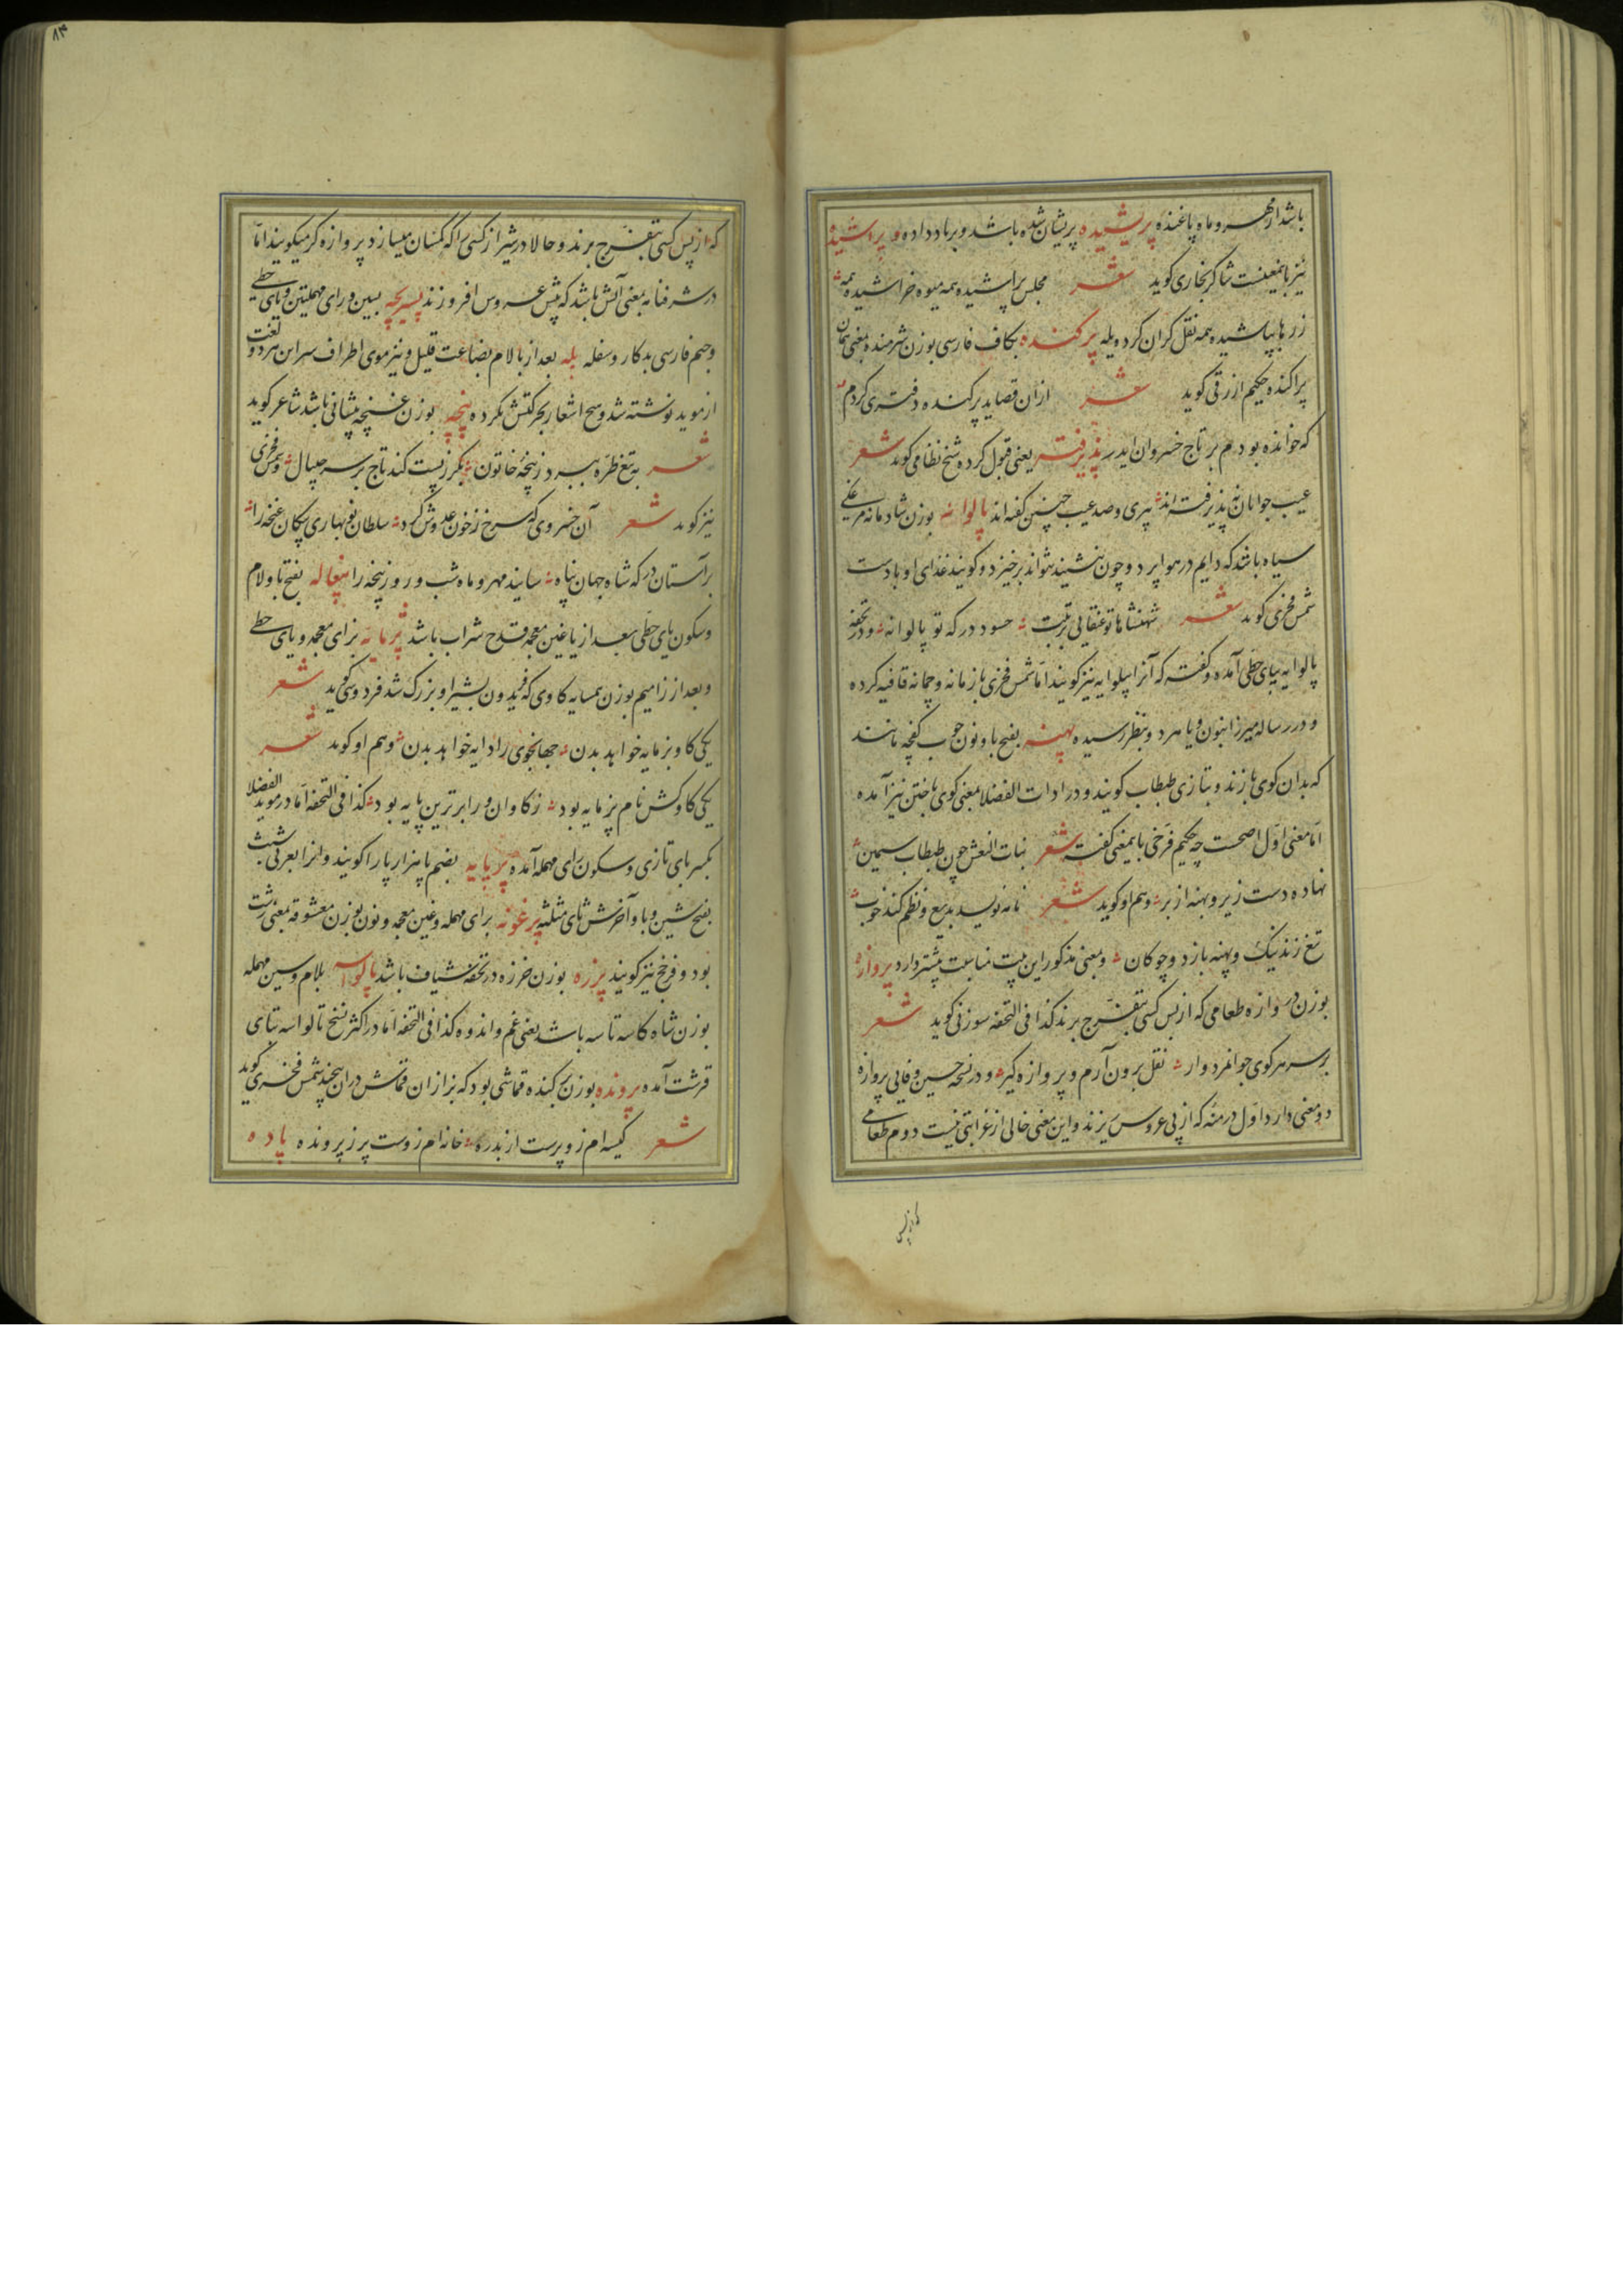 باشد از مهر و ماه پاغنده پریشیده پریشان شده باشد و برباد داده و پراشیده
نیز باینمعنیست شاکر بخاری گوید شعر مجلس پراشیده همه میوه خراشیده همه
زرها بپاشیده همه نقل گران کرده یله پرکنده بکاف فارسی بوزن شرمنده بمعنی همان
پراکنده حکیم ازرقی گوید شعر ازان قصاید پرکنده دفتری کردم
که خوانده بودم بر تاج خسروان ایدر پذیرفته یعنی قبول کرده شیخ نظامی گوید شعر
عیب جوانان نپذیرفته اند پیری و صد عیب چنین گفته اند پالوانه بوزن شادمانه مرغی
سیاه باشد که دایم در هوا پرد و چون نشیند نتواند برخیزد و گویند غذای او بادست
شمس فخری گوید شعر شهنشاها تو عنقایی برتبت حسود درکه تو پالوانه و در تحفه
پالوایه بیای حطی آمده و گفته که آنرا پیلوایه نیز گویند اما شمس فخری با زمانه و چمانه قافیه کرده
و در رساله میرزا بنون و یا هر دو بنظر رسیده پهنه بفتح با و نون چوب کفچه مانند
که بدان گوی بازند و بتازی طبطاب گویند و در ادات الفضلا بمعنی گوی باختن نیز آمده
اما معنی اول اصحست چه حکیم فرخی باینمعنی گفته شعر بنات النعش چون طبطاب سیمین
نهاده دست زیر و پهنه از بر و هم او گوید شعر نامه نویسد بدیع و نظم کند خوب
تیغ زند نیک و پهنه بازد و چوکان و بمعنی مذکور این بیت مناسبت بیشتر دارد پروازه
بوزن دروازه طعامی که از پس کسی بتفرج برند کذا فی التحفه سوزنی گوید شعر
بر سر هر کوی جوانمردوار نقل برون آرم و پروازه گیر و در نسخه حسین وفایی پروازه
دو معنی دارد اول درمنه که از پی عروس ریزند و این معنی خالی از غرابتی نیست دوم طعامی
که از پس
که از پس کسی بتفرج برند و حالا در شیراز کسی را که کسان میسازد پروازه گر میگویند اما
در شرفنامه بمعنی آتش باشد که پیش عروس افروزند بسین و رای مهملتین و یای حطی
و جیم فارسی بدکار و سفله پله بعد از با لام بضاعت قلیل و نیز موی اطراف سر این هر دو لغت
از موید نوشته شد و هیچ اشعار بحرکتش نکرده پنچه بوزن غنچه پیشانی باشد شاعر گوید
شعر به تیغ طره ببرد ز پنجهٔ خاتون بگرز پست کند تاج بر سر چیپال و شمس فخری
نیز گوید شعر آن خسروی که سرخ ز خون عدوش کرد سلطان نوبهاری پیکان غنچه را
بر آستان درکه شاه جهان پناه سایند مهر و ماه شب و روز پنچه را پیغاله بفتح با و لام
و سکون یای حطی بعد از یا غین معجمه قدح شراب باشد پرمایه بزای معجمه و یای حطی
و بعد از زا میم بوزن همسایه گاوی که فریدون بشیر او بزرگ شد فردوسی گوید شعر
یکی گاو پرمایه خواهد بدن جهانجوی را دایه خواهد بدن و هم او گوید شعر
یکی گاو کش نام پرمایه بود ز گاوان ورا برترین پایه بود کذا فی التحفه اما در موید الفضلا
بکسر بای تازی و سکون رای مهمله آمده پرپایه بضم با هزارپا را گویند و انرا بعربی شبث
بفتح شین و با و آخرش ثای مثلثه پرغونه برای مهمله و غین معجمه و نون بوزن معشوقه بمعنی زشت
بود و فرخج نیز گویند پرزه بوزن خرزه در تحفه شیاف باشد پالواسه بلام و سین مهمله
بوزن شاه کاسه تاسه باشد یعنی غم و اندوه کذا فی التحفه اما در اکثر نسخ تالواسه بتای
قرشت آمده پرونده بوزن قماشی بود که بزازان قماش در ان پیچند شمس فخری گوید
شعر کیسه ام زو پرست از بدره خانه ام زوست پر ز پرونده پاده
۸۳